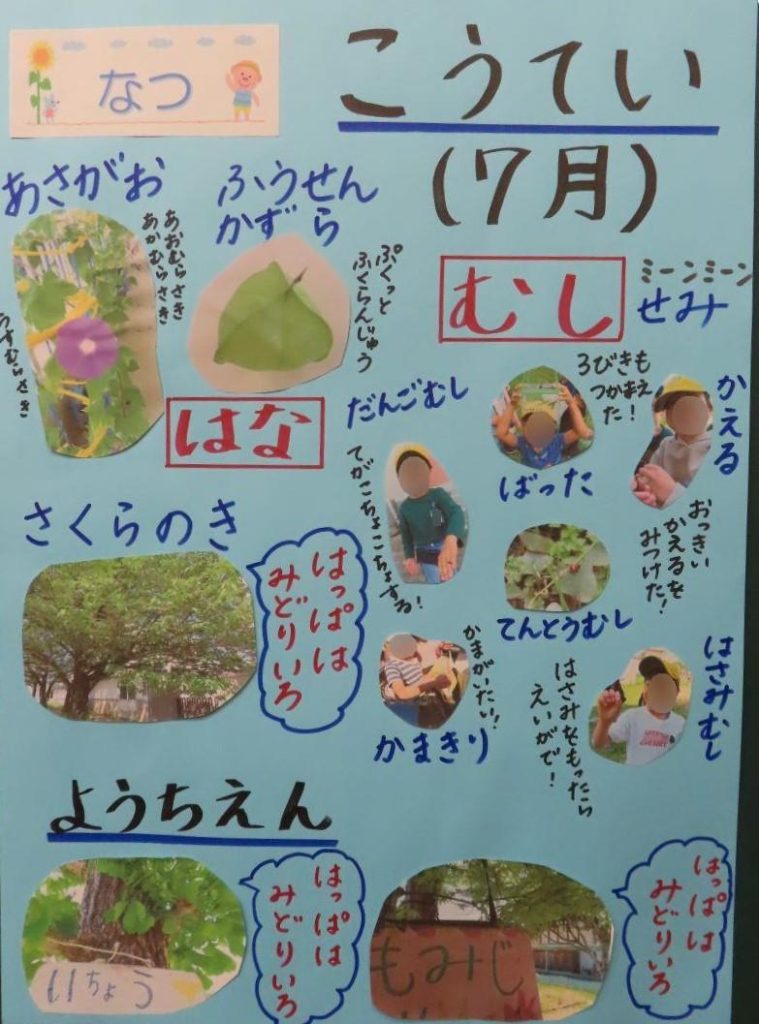 なつ
こうてい
(7月)
あさがお
あおむらさき
あかむらさき
うすむらさき
ふうせん
かずら
ぷくっと
ふくらんじゅう
はな
むし
ミーンミーン
せみ
だんごむし
てがこちょこちょする!
3びきも
つかまえ
た!
ばった
かえる
おっきい
かえるを
みつけた!
てんとうむし
かまがいたい!
かまきり
はさみむし
はさみをもったら
えいがで!
さくらのき
はっぱは
みどりいろ
ようちえん
いちょう
はっぱは
みどりいろ
もみじ
はっぱは
みどりいろ